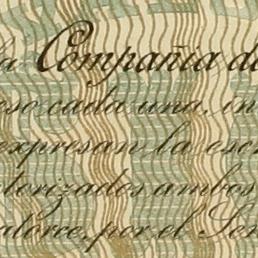 la Compañia de
eso cada una, in
expresan la esc
torizados ambos
atorce, por el Señ